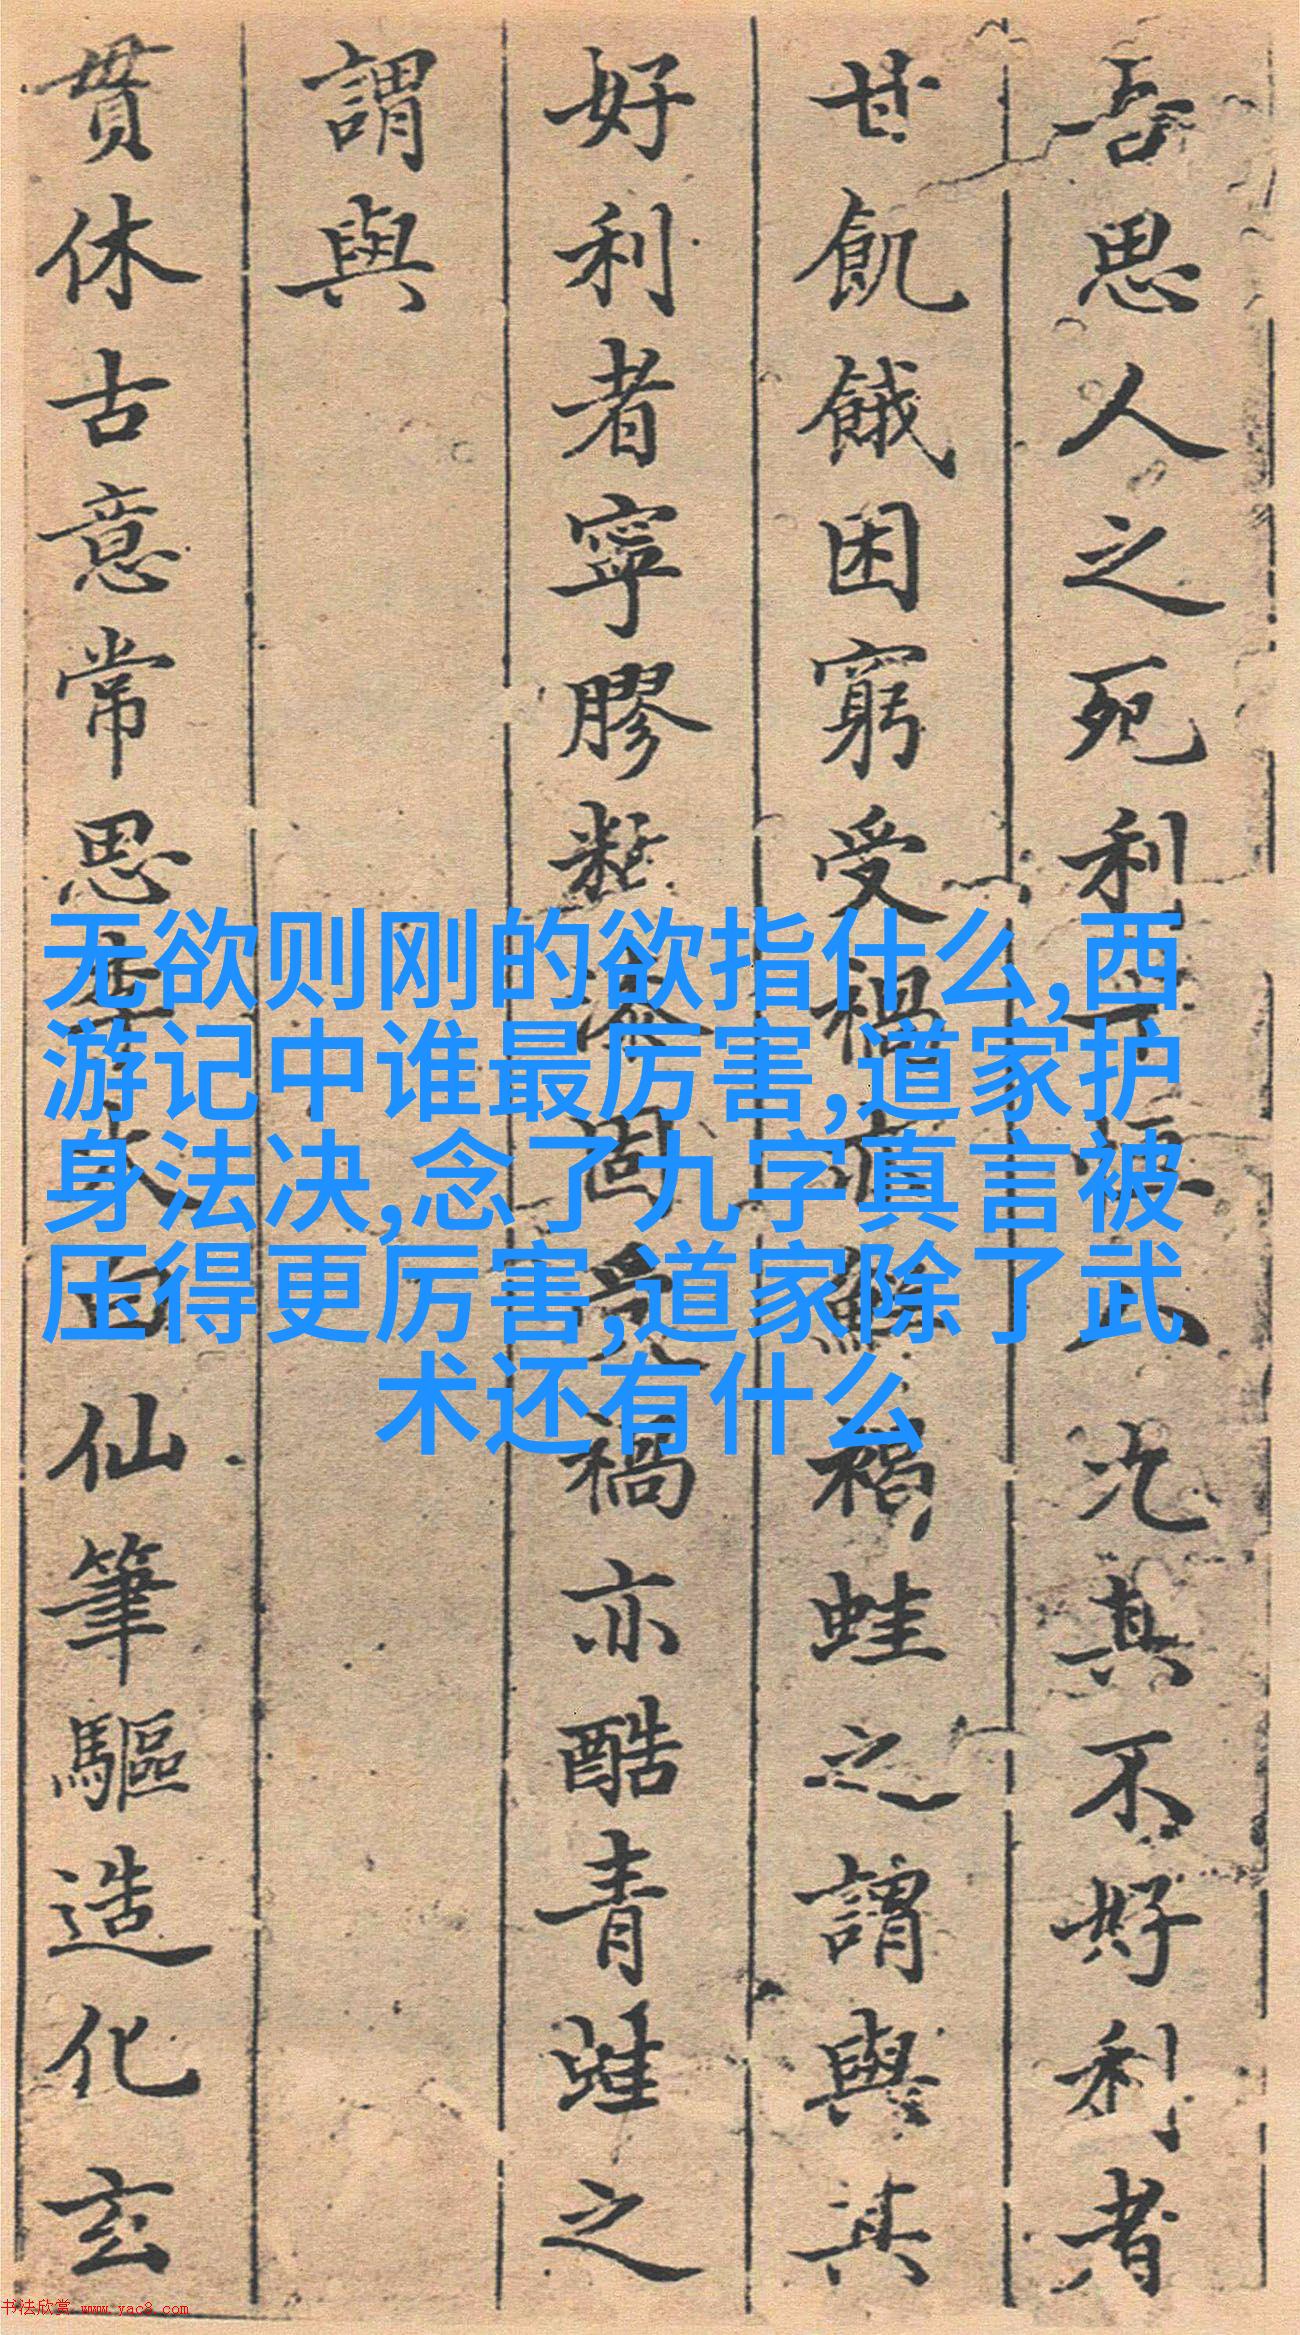 吾思人之死利
其不好利者
甘飢餓困窮受禍
禍蛙之謂與其
好利者寧膠黏漆固受禍亦酷青蛙之
謂與
貫休古意常思李太白仙筆驅造化玄
无欲则刚的欲指什么,西
游记中谁最厉害,道家护
身法决,念了九字真言被
压得更厉害,道家除了武
术还有什么
书法欣赏 www.yac8.com